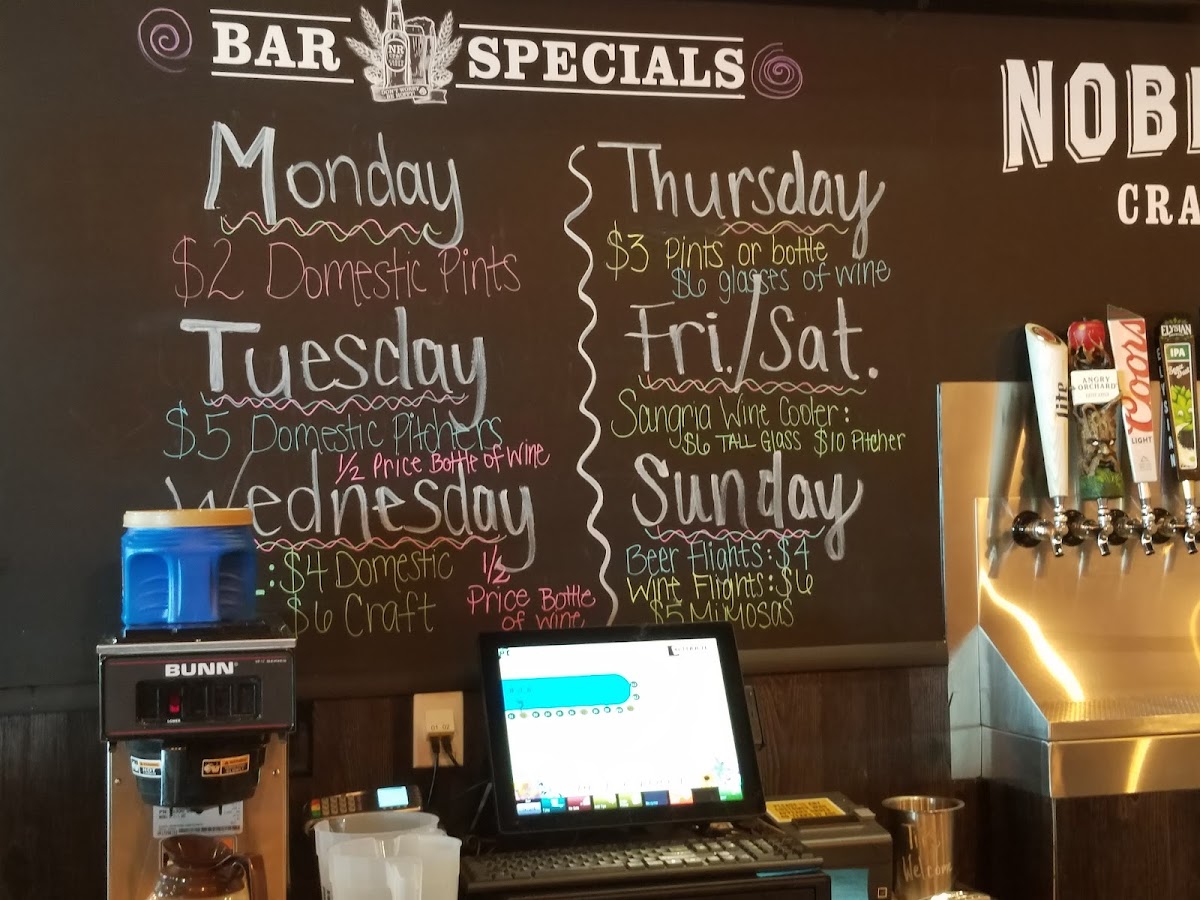 BAR SPECIALS
NR
DON'T WORRY
BE HOPPY!
Monday
$2 Domestic Pints
Tuesday
$5 Domestic Pitchers
1/2 Price Bottle of Wine
Wednesday
: $4 Domestic
$6 Craft
1/2
Price Bottle
of Wine
Thursday
$3 Pints or bottle
$6 glasses of wine
Fri./Sat.
Sangria Wine Cooler:
$6 TALL GLASS $10 Pitcher
Sunday
Beer Flights: $4
Wine Flights: $6
$5 MiMOSAS
NOB
CRA
lite
ANGRY
ORCHARD
Coors
LIGHT
ELYSIAN
IPA
BUNN
Welcome